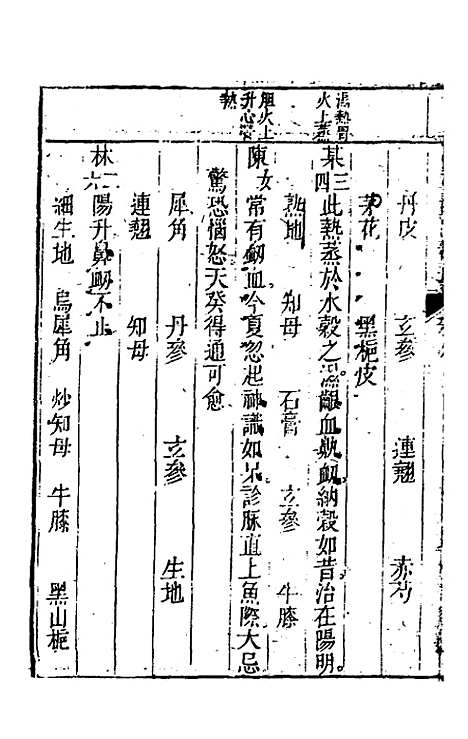 丹皮　玄參　連翹　赤芍
茅花　黑梔皮
濕熱胃火上蒸
某三四　此熱蒸於水穀之濕齦血鼽衂納穀如昔治在陽明。
熟地　知母　石膏　玄參　牛膝
膽火上升心營熱
陳女　常有衂血今夏忽起神識如呆診脉直上魚際大忌
驚恐惱怒天癸得通可愈
犀角　丹參　玄參　生地
連翹　知母
林　陽升鼻衂不止
細生地　烏犀角　炒知母　牛膝　黑山梔